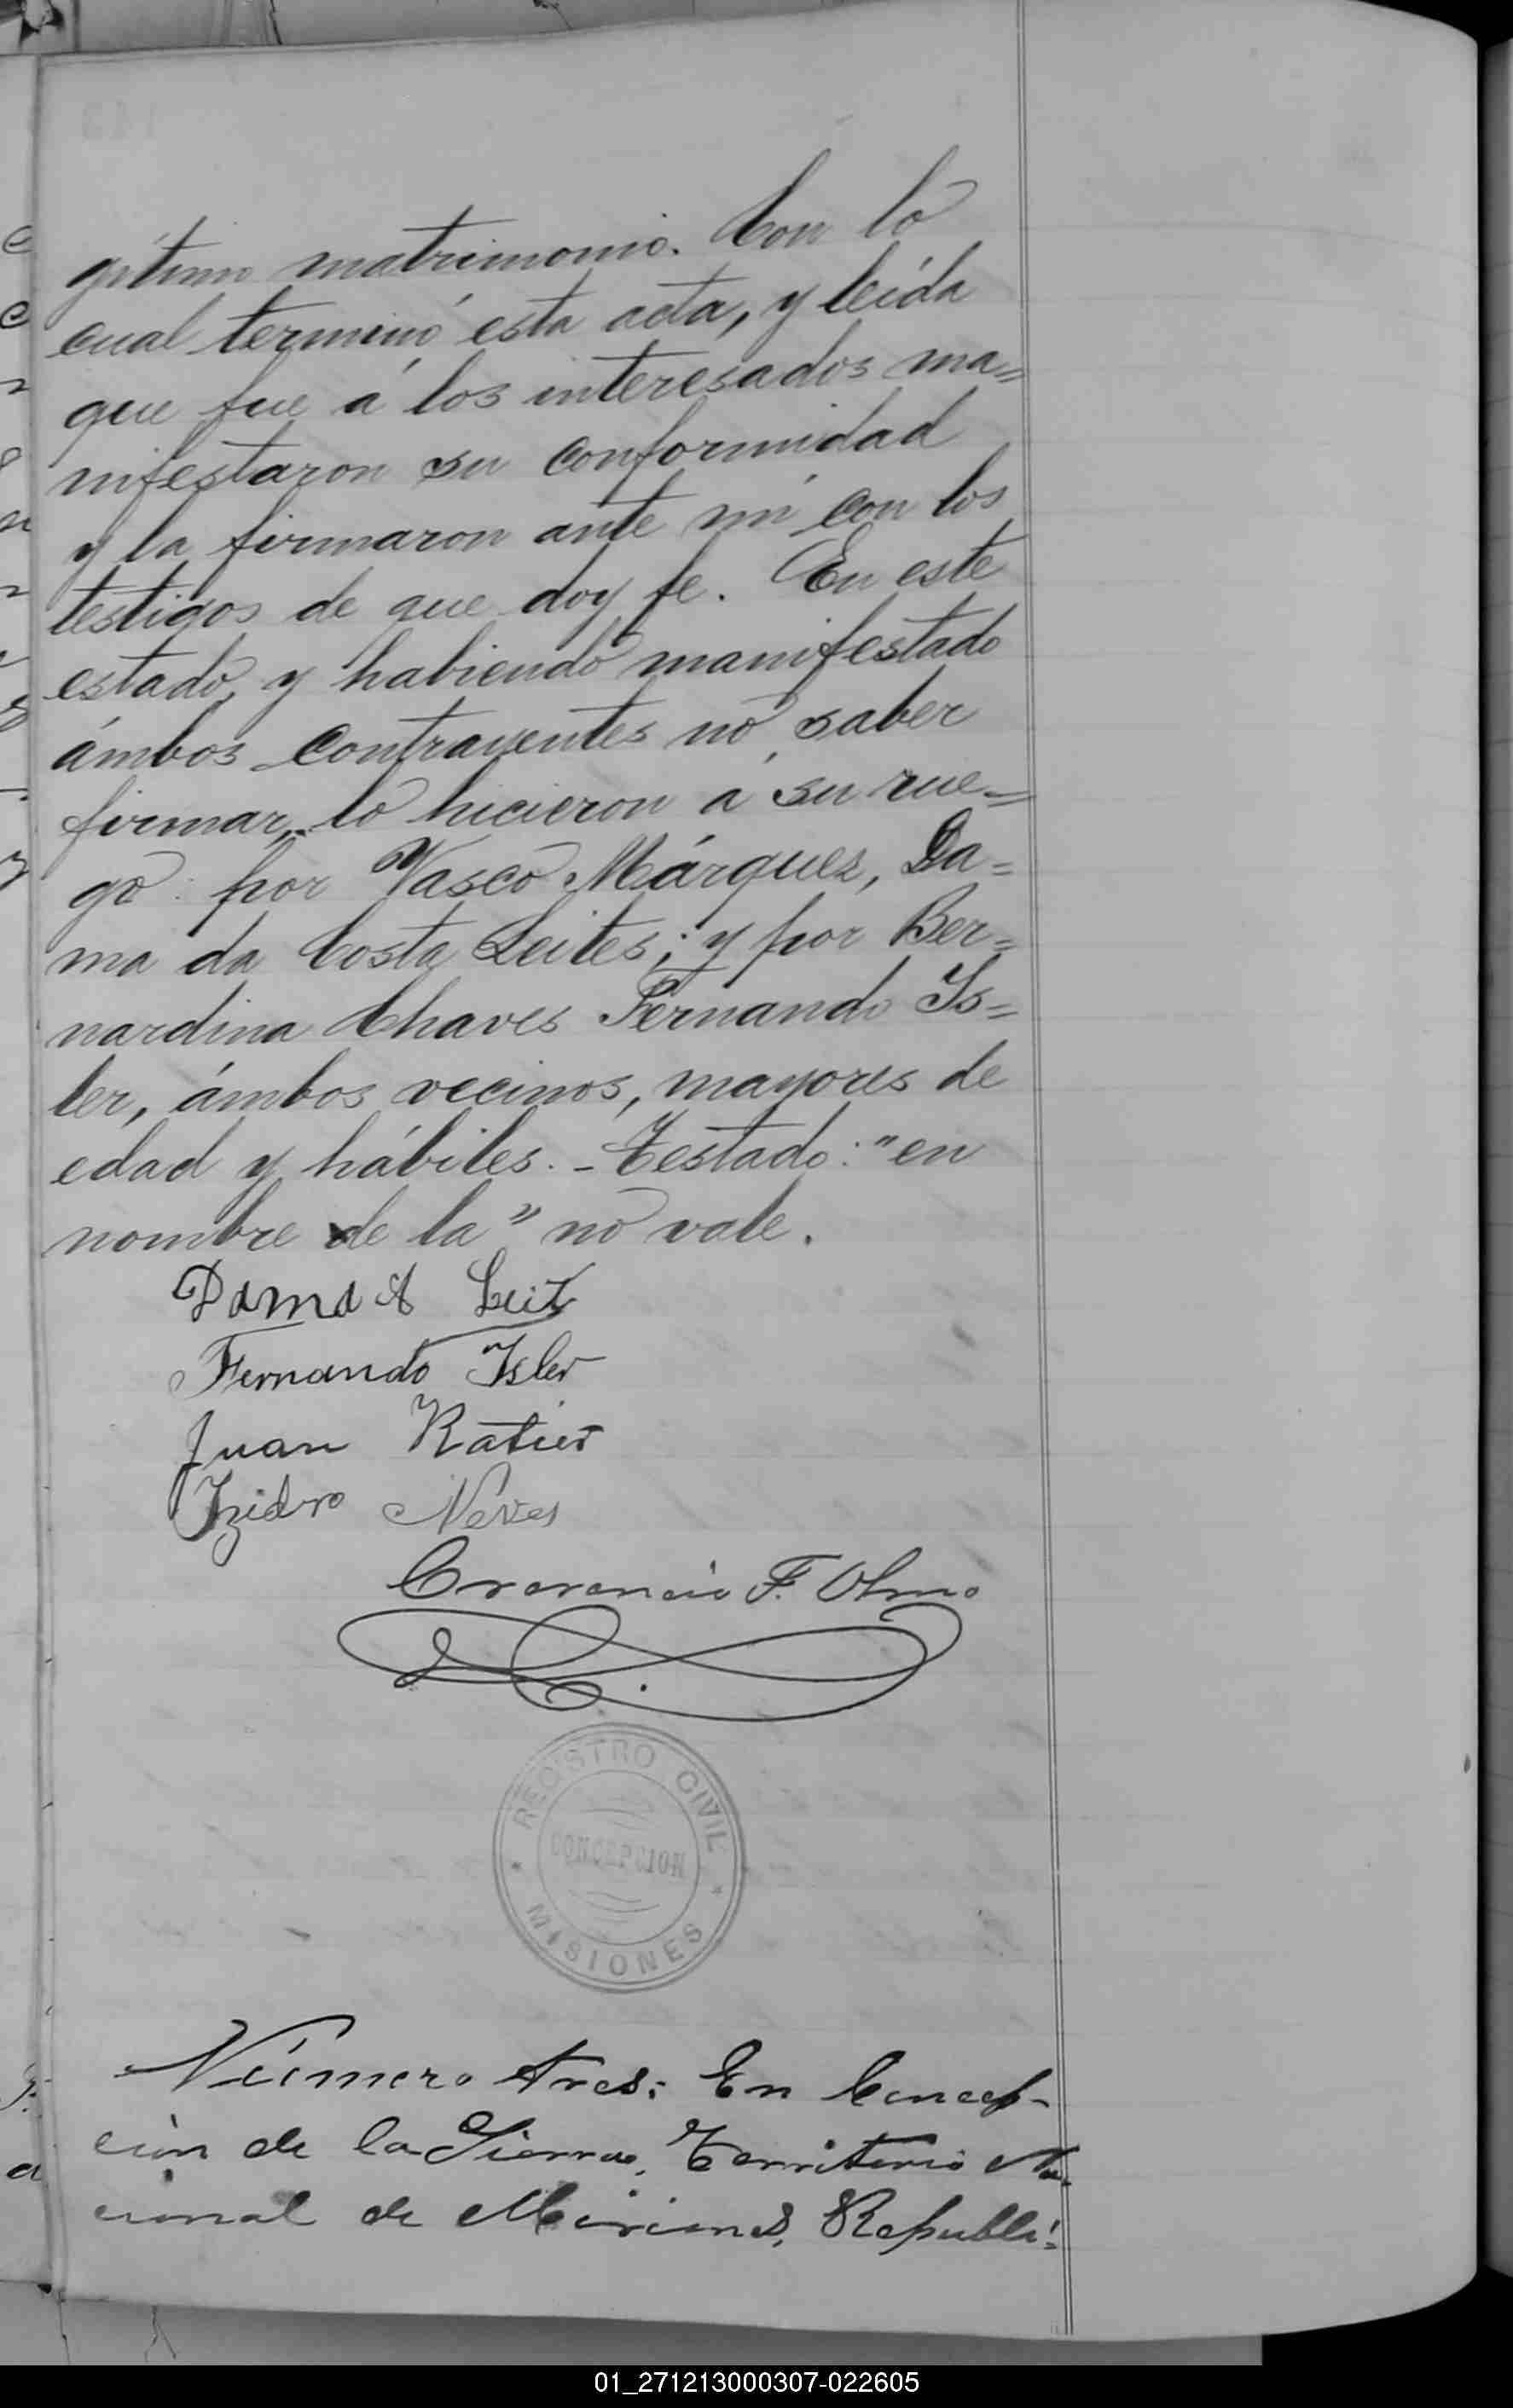 gítimo matrimonio. Con lo
cual terminó esta acta, y leída
que fue á los interesados ma=
nifestaron su conformidad
y la firmaron ante mí con los
testigos de que doy fe. En este
estado, y habiendo manifestado
ámbos contrayentes no saber
firmar, lo hicieron á su rue=
go: por Vasco Márquez, Da=
ma da Costa Leites; y por Ber=
nardina Chaves Fernando Is=
ler, ámbos vecinos, mayores de
edad y hábiles. - Testado: "en
nombre de la" no vale.
Dama A Leit
Fernando Isler
Juan Ratier
Izidro Neves
F. Olmo
REGISTRO CIVIL
CONCEPCION
MISIONES
Número tres: En Concep-
ción de la Sierra, Territorio Na-
cional de Misiones, Republi=
01_271213000307-022605